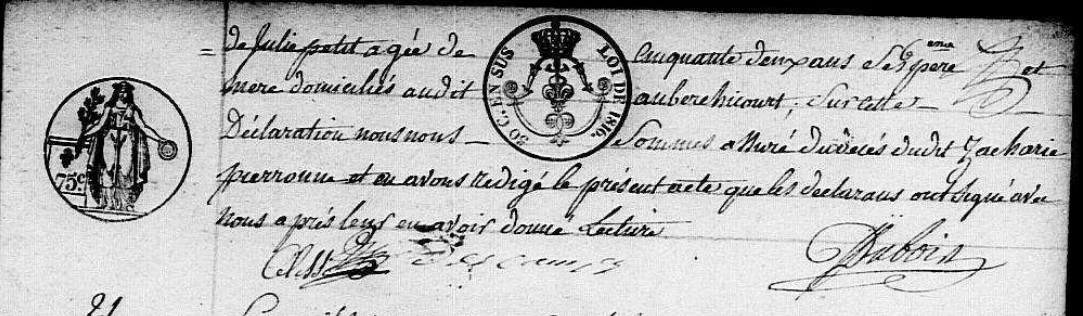 de Julie petit agée de cinquante deux ans Ses père et
mere domiciliés audit auberchicourt, Sur cette
Déclaration nous nous Sommes assuré du décès dudit Zacharie
pierronne et en avons redigé le présent acte que les declarans ont signé avec
nous après leur en avoir donné Lecture
Descamps
Dubois
30 C. EN SUS
LOI DE 1816.
75c
21